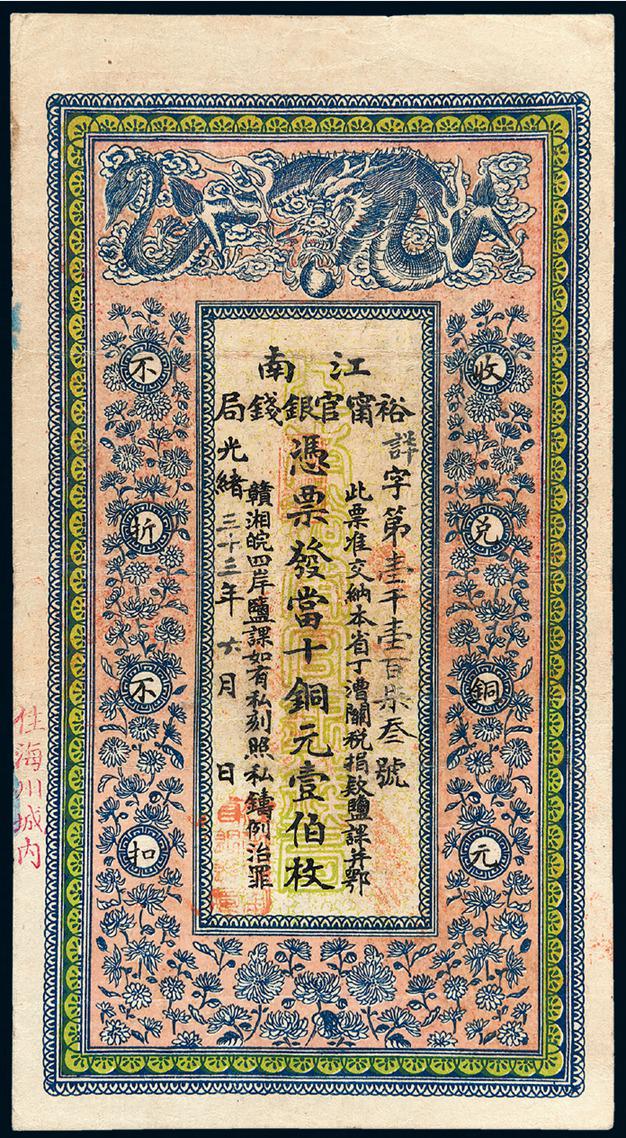 江南
裕甯官銀錢局
詳字第壹千壹百柒叁號
此票准交納本省丁漕關稅捐款鹽課并鄂
憑票發當十銅元壹伯枚
贛湘皖四岸鹽課如有私刻照私鑄例治罪
光緒三十二年六月日
收兌銅元
不折不扣
住海川城內